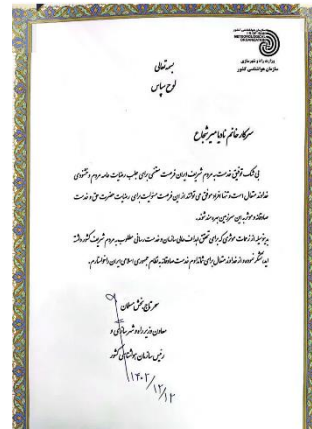 سازمان هواشناسی کشور
I.R. OF IRAN
METEOROLOGICAL
ORGANIZATION
وزارت راه و شهرسازی
سازمان هواشناسی کشور
بسمه تعالی
لوح سپاس
سرکار خانم نادیا میر شجاع
بی شک توفیق خدمت به مردم شریف ایران فرصت مغتنمی برای جلب رضایت عامه مردم و خشنودی
خداوند متعال است و تنها افراد موفق می توانند از این فرصت مسئولیت برای رضایت حضرت حق و خدمت
صادقانه و موثر به این سرزمین بهره مند شوند.
بدینوسیله از زحمات موثری که برای تحقق اهداف عالی سازمان و خدمت رسانی مطلوب به مردم شریف کشور داشته
اید تشکر نموده و از خداوند متعال برای شما تداوم خدمت صادقانه به نظام جمهوری اسلامی ایران را خواستارم.
سحر تاج بخش مسلمان
معاون وزیر راه و شهرسازی و
رئیس سازمان هواشناسی کشور
۱۴۰۲/۱۲/۱۲